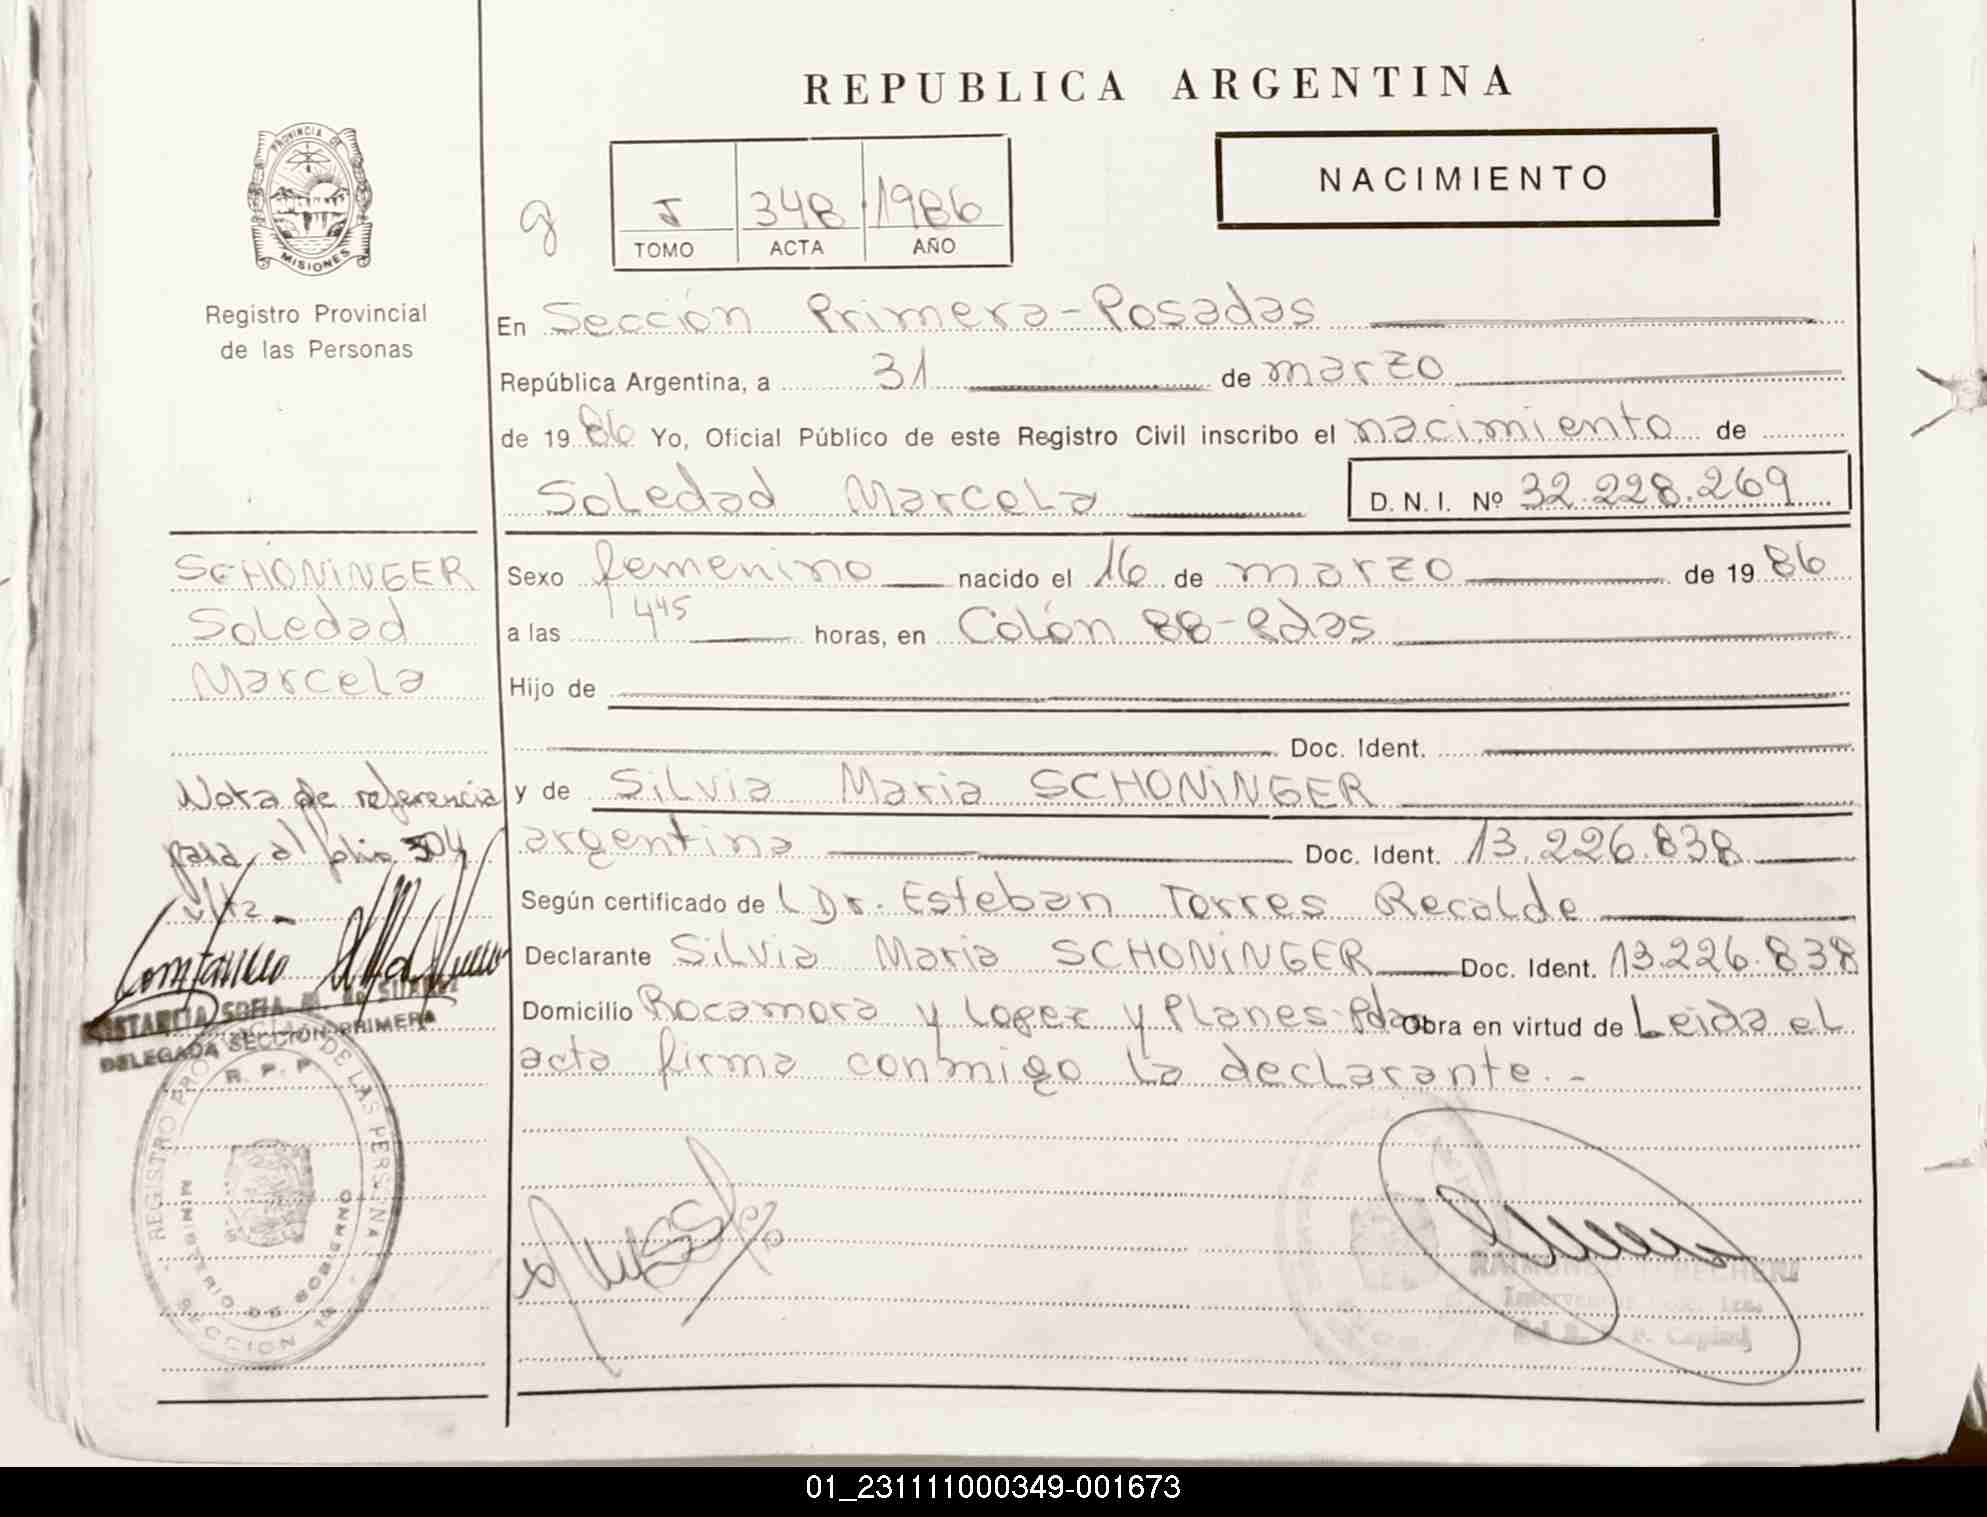 REPUBLICA ARGENTINA
PROVINCIA DE
MISIONES
Registro Provincial
de las Personas
g
J 348 1986
TOMO ACTA AÑO
NACIMIENTO
En Sección Primera-Posadas
República Argentina, a 31 de marzo
de 1986 Yo, Oficial Público de este Registro Civil inscribo el nacimiento de
Soledad Marcela D. N. I. Nº 32.228.269
SCHONINGER
Soledad
Marcela
Sexo femenino nacido el 16 de marzo de 1986
a las 4 45 horas, en Colón 88-Pdas
Hijo de
Doc. Ident.
y de Silvia Maria SCHONINGER
argentina Doc. Ident. 13.226.838
Según certificado de Dr. Esteban Torres Recalde
Declarante Silvia Maria SCHONINGER Doc. Ident. 13.226.838
Domicilio Rocamora y Lopez y Planes-Pdas Obra en virtud de Leida el
acta firma conmigo la declarante.-
Nota de referencia
pasa al folio 304
vlta-
SOFIA
DELEGADA SECCION PRIMERA
REGISTRO PROVINCIAL DE LAS PERSONAS
R. P. P.
MINISTERIO DE GOBIERNO
SECCION 1ª
01_231111000349-001673